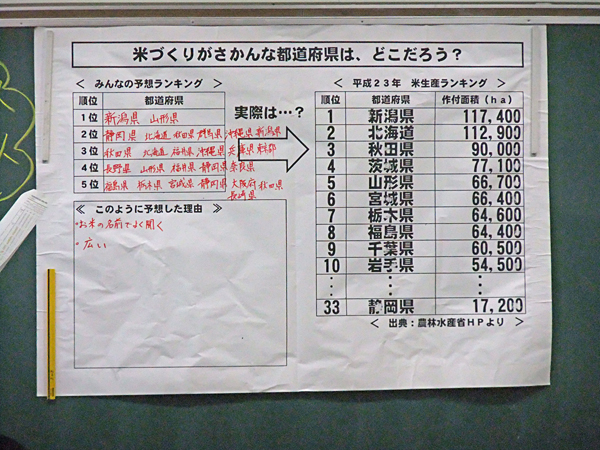 米づくりがさかんな都道府県は、どこだろう？
＜ みんなの予想ランキング ＞
順位 都道府県
1位 新潟県 山形県
2位 静岡県 北海道 秋田県 群馬県 沖縄県 新潟県
3位 秋田県 北海道 福井県 沖縄県 兵庫県 東京都
4位 長野県 山形県 福井県 静岡県 奈良県
5位 福島県 栃木県 宮城県 静岡県 大阪府 秋田県
長崎県
実際は…？
≪ このように予想した理由 ≫
・お米の名前でよく聞く
・広い
＜ 平成２３年 米生産ランキング ＞
順位 都道府県 作付面積（ｈａ）
1 新潟県 117,400
2 北海道 112,900
3 秋田県 90,000
4 茨城県 77,100
5 山形県 66,700
6 宮城県 66,400
7 栃木県 64,600
8 福島県 64,400
9 千葉県 60,500
10 岩手県 54,500
33 静岡県 17,200
＜ 出典：農林水産省ＨＰより ＞